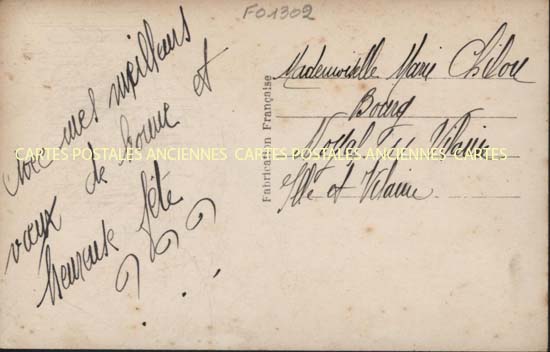 FO1302
Avec mes meilleurs
vœux de bonne et
heureuse fête
Fabrication Française
Mademoiselle Marie
Bourg
Ille et Vilaine
CARTES POSTALES ANCIENNES CARTES POSTALES ANCIENNES CARTES